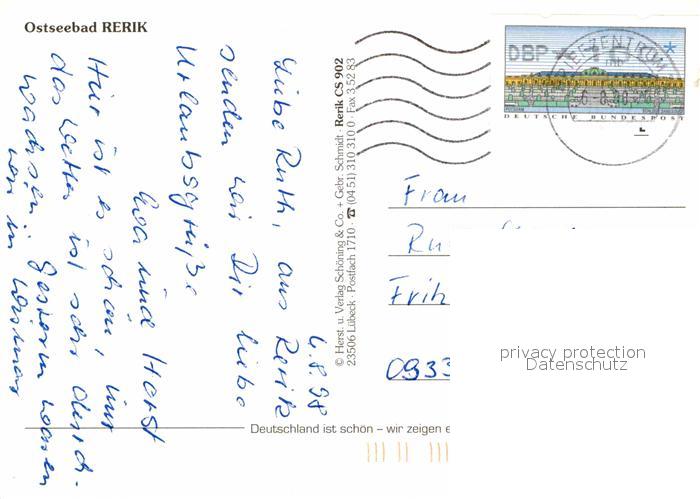 Ostseebad RERIK
6.8.98
Liebe Ruth, aus Rerik
senden wir Dir liebe
Urlaubsgrüße
Eva und Horst
Hier ist es schön, nur
das Wetter ist sehr durch-
wachsen. Gestern waren
wir in Wismar
© Herst. u. Verlag Schöning & Co. + Gebr. Schmidt · Rerik CS 902
23506 Lübeck · Postfach 1710 · ☎ (04 51) 310 310 0 · Fax 3 52 83
DBP
BRIEFZENTRUM
DEUTSCHE BUNDESPOST
Frau
Ru
Fritz
0933
privacy protection
Datenschutz
Deutschland ist schön – wir zeigen e